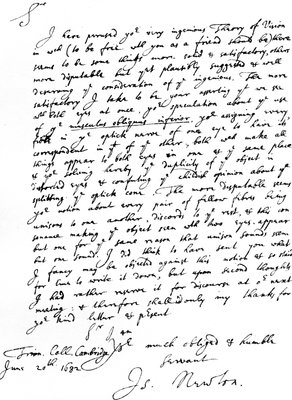 Sr
I have perused yor very ingenious Theory of Vision
in wch (to be free wth you as a friend should be) there
seems to be some things more solid & satisfactory, others
more disputable but yet plausibly suggested & well
deserving ye consideration of ye ingenious. The more
satisfactory I take to be your asserting yt we see
wth both eyes at once, yor speculation about ye use
of ye musculus obliquus inferior, yor assigning every
fibre in ye optick nerve of one eye to have its
correspondent in yt of ye other, both wch make all
things appear to both eyes in one & ye same place
& yor solving hereby ye duplicity of ye object in
distorted eyes & confuting ye childish opinion about ye
splitting ye optick cone. The more disputable seems
yor notion about every pair of fellow fibres being
unisons to one another, discords to ye rest, & this con-
sonance making ye object seen wth two eyes appear
but one for ye same reason that unison sounds seem
but one sound. I did think to have sent you what
I fancy may be objected against this notion & so staid
for time to write it down, but upon second thoughts
I had rather reserve it for discourse at or next
meeting: & therefore shall add only my thanks for
yor kind letter & present.
Sr I am
Trin. Coll. Cambridge yor much obliged & humble
June 20th 1682. Servant
Is. Newton.